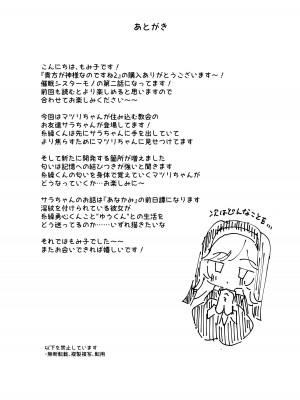 あとがき
こんにちは、もみ子です！
『貴方が神様なのですね2』の購入ありがとうございます～！
催眠シスターモノの第二話になってます！
前回も読むとより楽しめると思いますので
合わせてお楽しみください～～
今回はマツリちゃんが住み込む教会の
お友達サラちゃんが登場してます！
糸繰くんは先にサラちゃんに手を出していて
より焦らすためにマツリちゃんに見せつけてます
そして新たに開発する箇所が増えました
匂いは記憶への結びつきが強いと聞きます
糸繰くんの匂いを身体で覚えていくマツリちゃんが
どうなっていくか…お楽しみに～
サラちゃんのお話は「あなかみ」の前日譚になります
淫紋を付けられている彼女が
糸繰勇心くんこと"ゆうくん"との生活を
どう送ってるのか……いずれ描きたいな
それではもみ子でした～～
またお会いできれば嬉しいです！
次はどんなことを…
以下を禁止しています
・無断転載、複製複写、転用